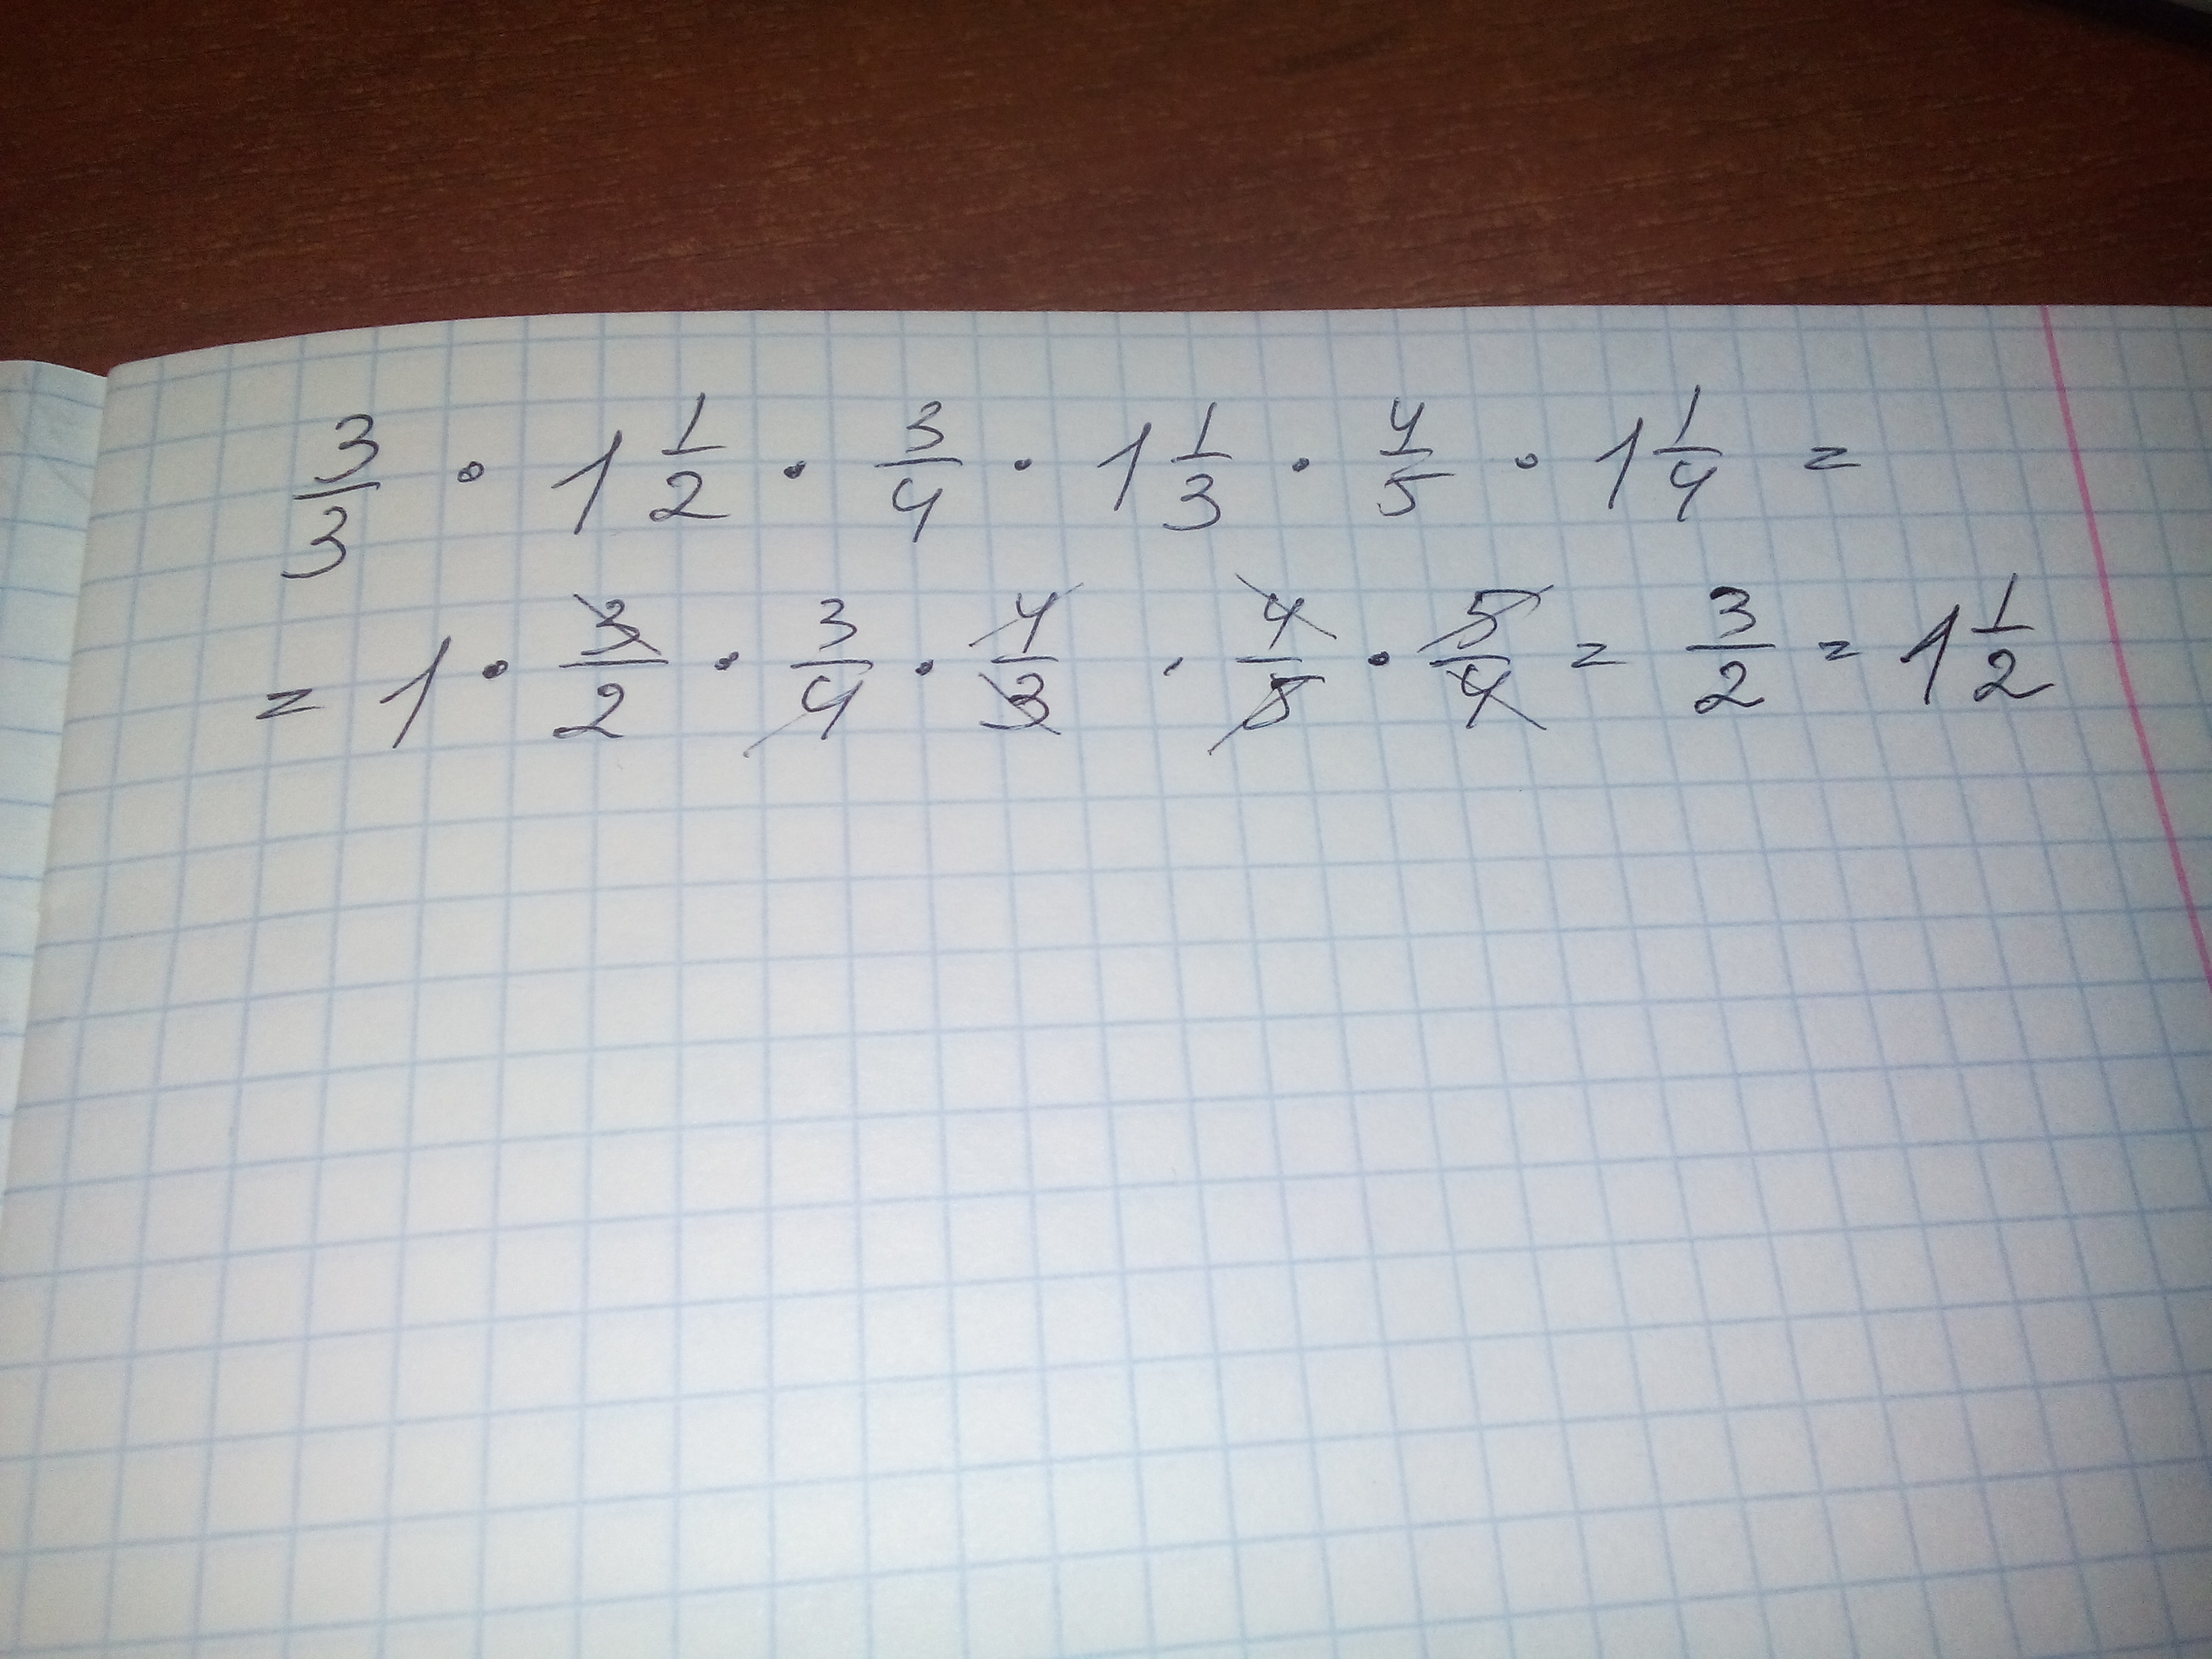 3/3 · 1 1/2 · 3/4 · 1 1/3 · 4/5 · 1 1/4 =
= 1 · 3/2 · 3/4 · 4/3 · 4/5 · 5/4 = 3/2 = 1 1/2